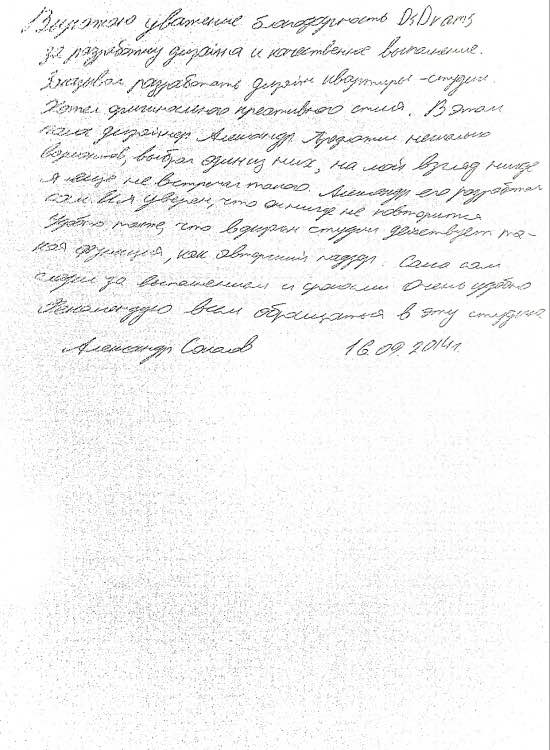 Выражаю уважение благодарность DsDrams
за разработку дизайна и качественное выполнение.
Заказывал разработать дизайн квартиры-студии.
Хотел оригинального креативного стиля. В этом
помог дизайнер Александр. Предложил несколько
вариантов, выбрал один из них, на мой взгляд нигде
я еще не встречал такого. Александр его разработал
сам. И я уверен, что он нигде не повторится
Удобно также, что в студии действует та-
кая функция, как авторский надзор. Сами
следят за выполнением и сроками Очень удобно
Рекомендую всем обращаться в эту студию
Александр Соколов 16.09.2014г.